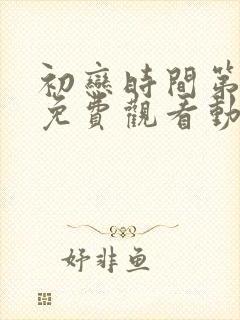 初戀時間第
免費觀看動
妤非魚